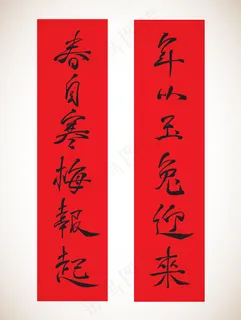 年以玉兔迎來
春自寒梅報起